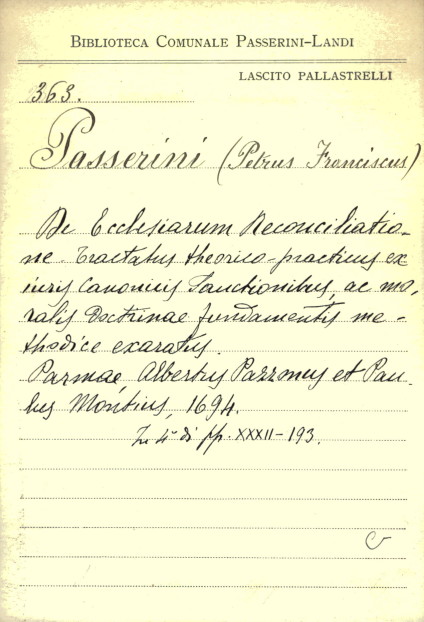 BIBLIOTECA COMUNALE PASSERINI-LANDI
LASCITO PALLASTRELLI
363.
Passerini (Petrus Franciscus)
De Ecclesiarum Reconciliatio-
ne. Tractatus theorico-practicus ex
iuris Canonicis Sanctionibus, ac mo,
ralis Doctrinae fundamentis me-
thodice exaratus.
Parmae, Albertus Pazzonus et Pau-
lus Montius, 1694.
In 4° di pp. XXXII-193.